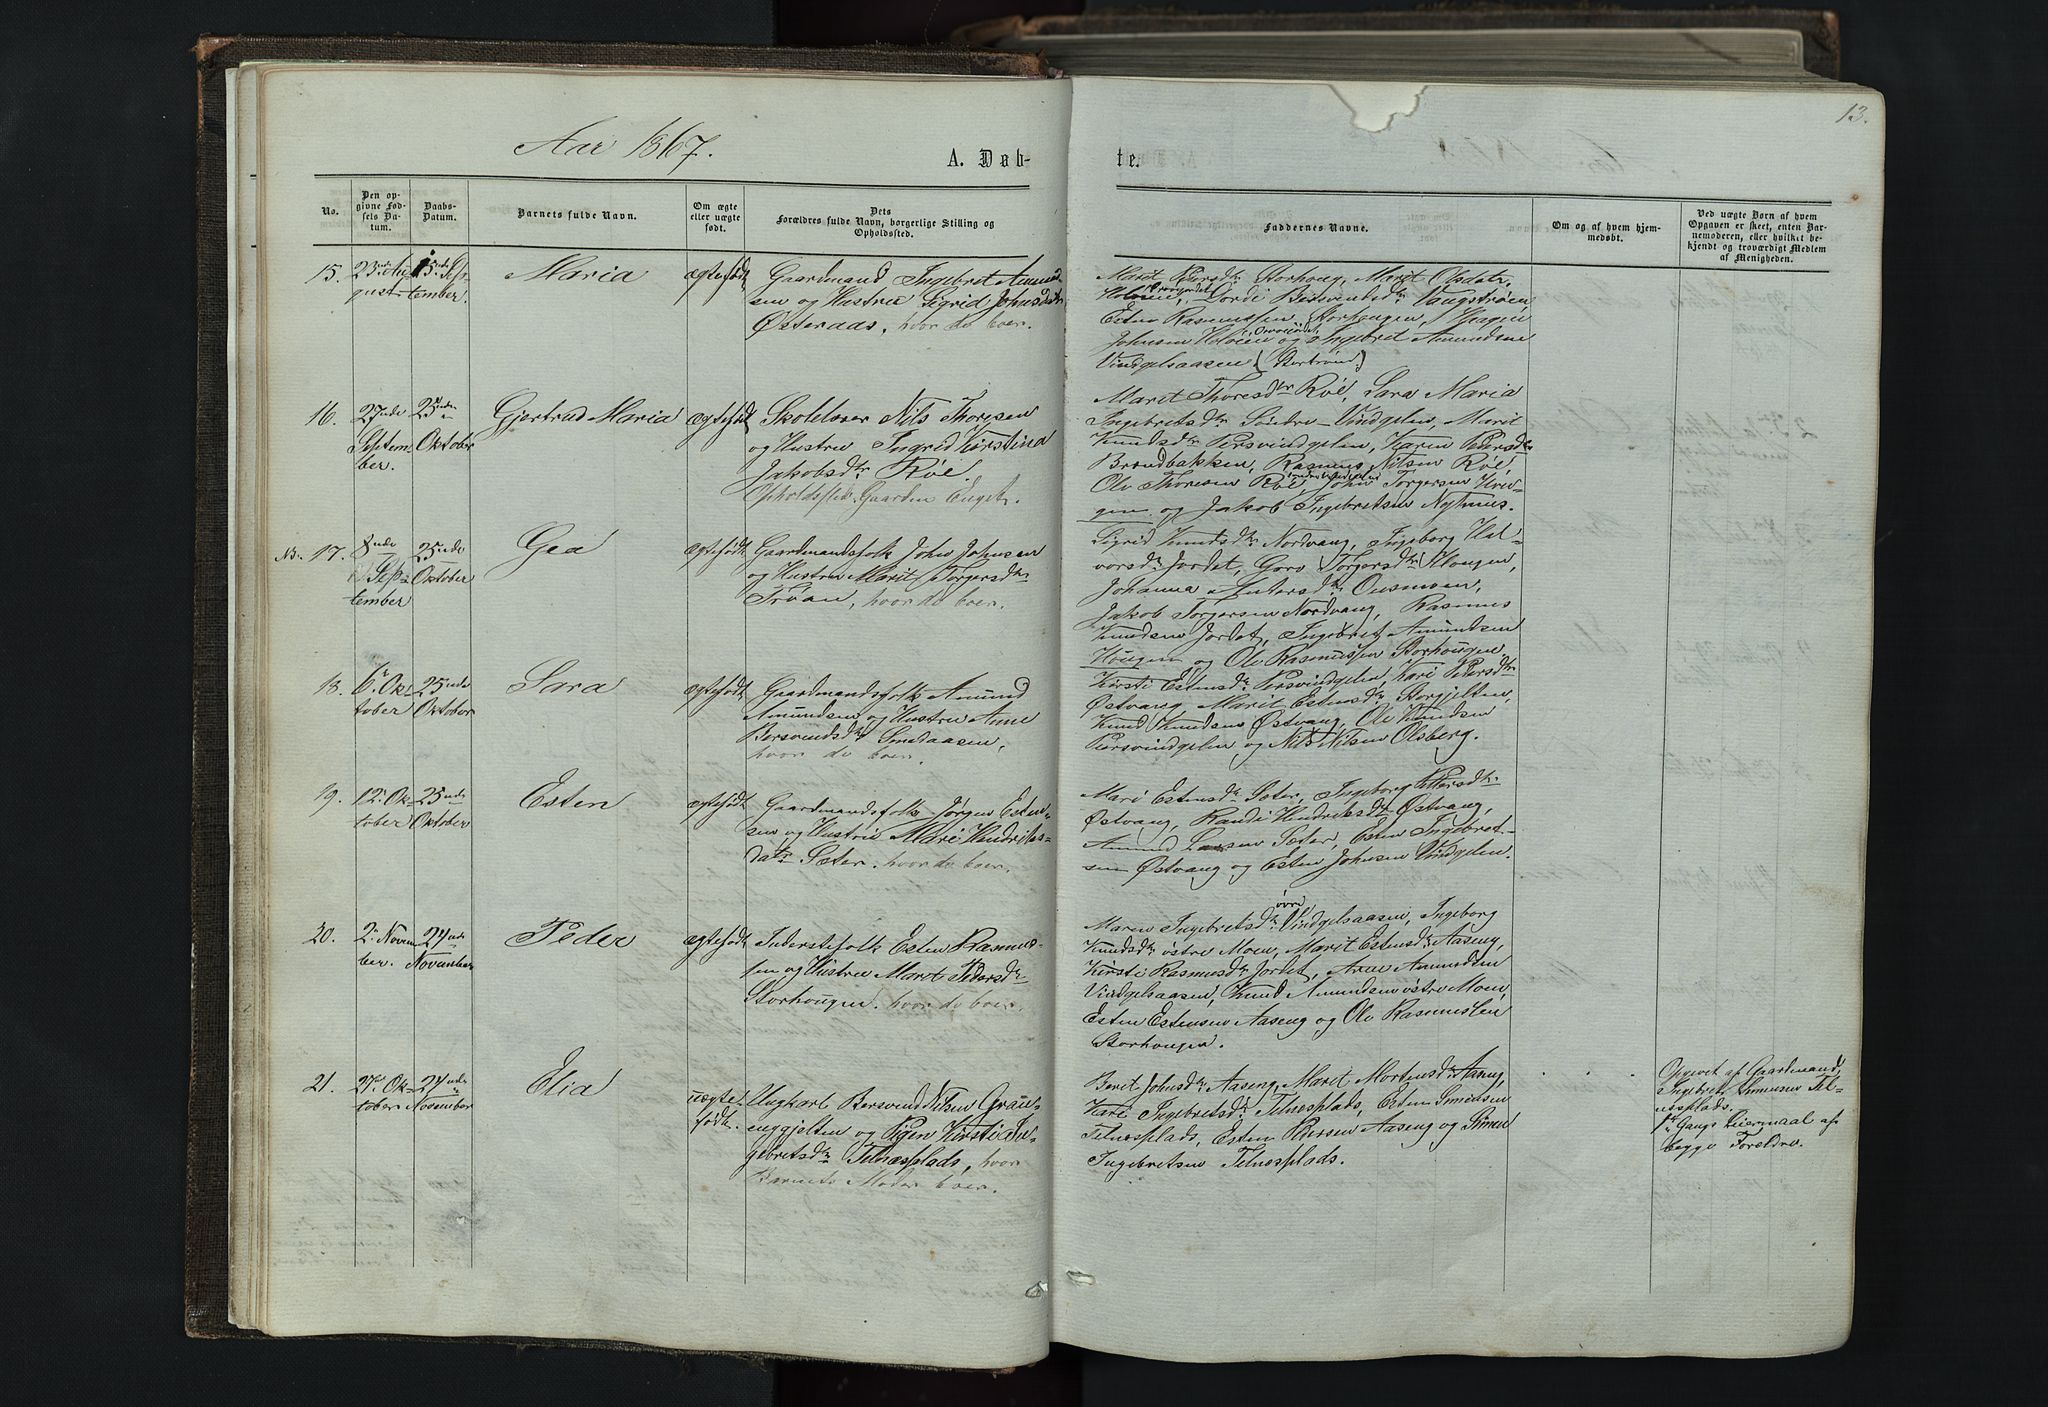 13.
Aar 1867.
A. Døb-
te.
No.
Den op-
givne Fød-
sels Da-
tum.
Daabs-
Datum.
Barnets fulde Navn.
Om ægte
eller uægte
født.
Dets
Forældres fulde Navn, borgerlige Stilling og
Opholdssted.
Faddernes Navne.
Om og af hvem hjem-
medøbt.
Ved uægte Børn af hvem
Opgaven er skeet, enten Bar-
nemoderen, eller hvilket be-
kjendt og troværdigt Medlem
af Menigheden.
15.
23de Au-
gust
15de Sep-
tember.
Maria
ægtefødt
Gaardmand Ingebret Amund-
sen og Hustru Sigrid Johnsdatr
Østeraas, hvor de boer.
Marit Storhoug, Marit Olsdatr
Dordi Bersvendsdr Vangstrøen
Esten Rasmussen Storhougen,
Johnsen og Ingebret Amundsen
Vindgelsaasen
16.
27nde
Septem-
ber.
25nde
Oktober
Gjertrud Maria
ægtefødt
Skolelærer Nils Thoresen
og Hustru Ingrid Kirstina
Jakobsdtr Røe.
Opholdssted Gaarden Enget.
Marit Thoresdtr Røe, Sara Maria
Ingebretsdtr Søndre-Vindgelen, Marit
Knudsdtr Persvindgelen, Karen Pedersdtr
Brændbakken, Rasmus Nilsen Røe,
Ole Thoresen Røe, John Torgersen Hou-
gen og Jakob Ingebretsen Nythus.
NB. 17.
8nde
Sep-
tember
25nde
Oktober
Gea
ægtefødt
Gaardmandsfolk John Johnsen
og Hustru Marit Torgersdtr
Trøan, hvor de boer.
Sigrid Knudsdtr Nordvang, Ingeborg Hal-
vorsdtr Jordet, Goro Torgersdtr Hougen,
Johanna Ousmoen,
Jakob Torgersen Nordvang, Rasmus
Knudsen Jordet, Ingebret Amundsen
Hougen og Ole Rasmussen Storhougen.
18.
6te Ok-
tober
25nde
Oktober
Sara
ægtefødt
Gaardmandsfolk Amund
Amundsen og Hustru Anne
Bersvendsdtr
hvor de boer.
Kirsti Estensdtr Persvindgelen, Kari Pedersdtr
Østvang, Marit Estensdtr Storgjelten,
Knud Knudsen Østvang, Ole Knudsen
Persvindgelen og Nils Nilsen Olsberg.
19.
12te Ok-
tober
25nde
Oktober
Esten
ægtefødt
Gaardmandsfolk Jørgen Esten-
sen og Hustru Mari Hendriks-
datr Sæter. hvor de boer.
Mari Estensdtr Sæter, Ingeborg Pedersdtr
Østvang, Randi Hendriksdtr Østvang,
Amund Larsen Sæter, Esten Ingebret-
sen Østvang og Esten Johnsen Vindgelen.
20.
2. Novem-
ber.
24nde
November
Peder
ægtefødt
Inderstefolk Esten Rasmus-
sen og Hustru Marit Pedersdtr
Storhougen. hvor de boer.
Maren Ingebretsdtr øvre Vindgelsaasen, Ingeborg
Knudsdtr østre Moen, Marit Estensdtr Aaseng,
Kirsti Rasmusdtr Jordet, Arne Amundsen
Vindgelsaasen, Knud Amundsen østre Moen,
Esten Estensen Aaseng og Ole Rasmussen
Storhougen.
21.
27de Ok-
tober
24nde
November
Elia
uægte-
født.
Ungkarl Bersvend Nilsen Graun-
enggjelten og Pigen Kirsti In-
gebretsdtr Telnesplads, hvor
Barnets Moder boer.
Beret Johnsdtr Aaseng, Marit Mortensdtr Aaseng,
Kari Ingebretsdtr Telnesplads, Esten Simensen
Telnesplads, Esten Pedersen Aaseng og Simen
Ingebretsen Telnesplads.
Opgivet af Gaardmand
Ingebret Simensen Tel-
nesplads.
1ste Gangs Leiermaal af
begge Forældre.